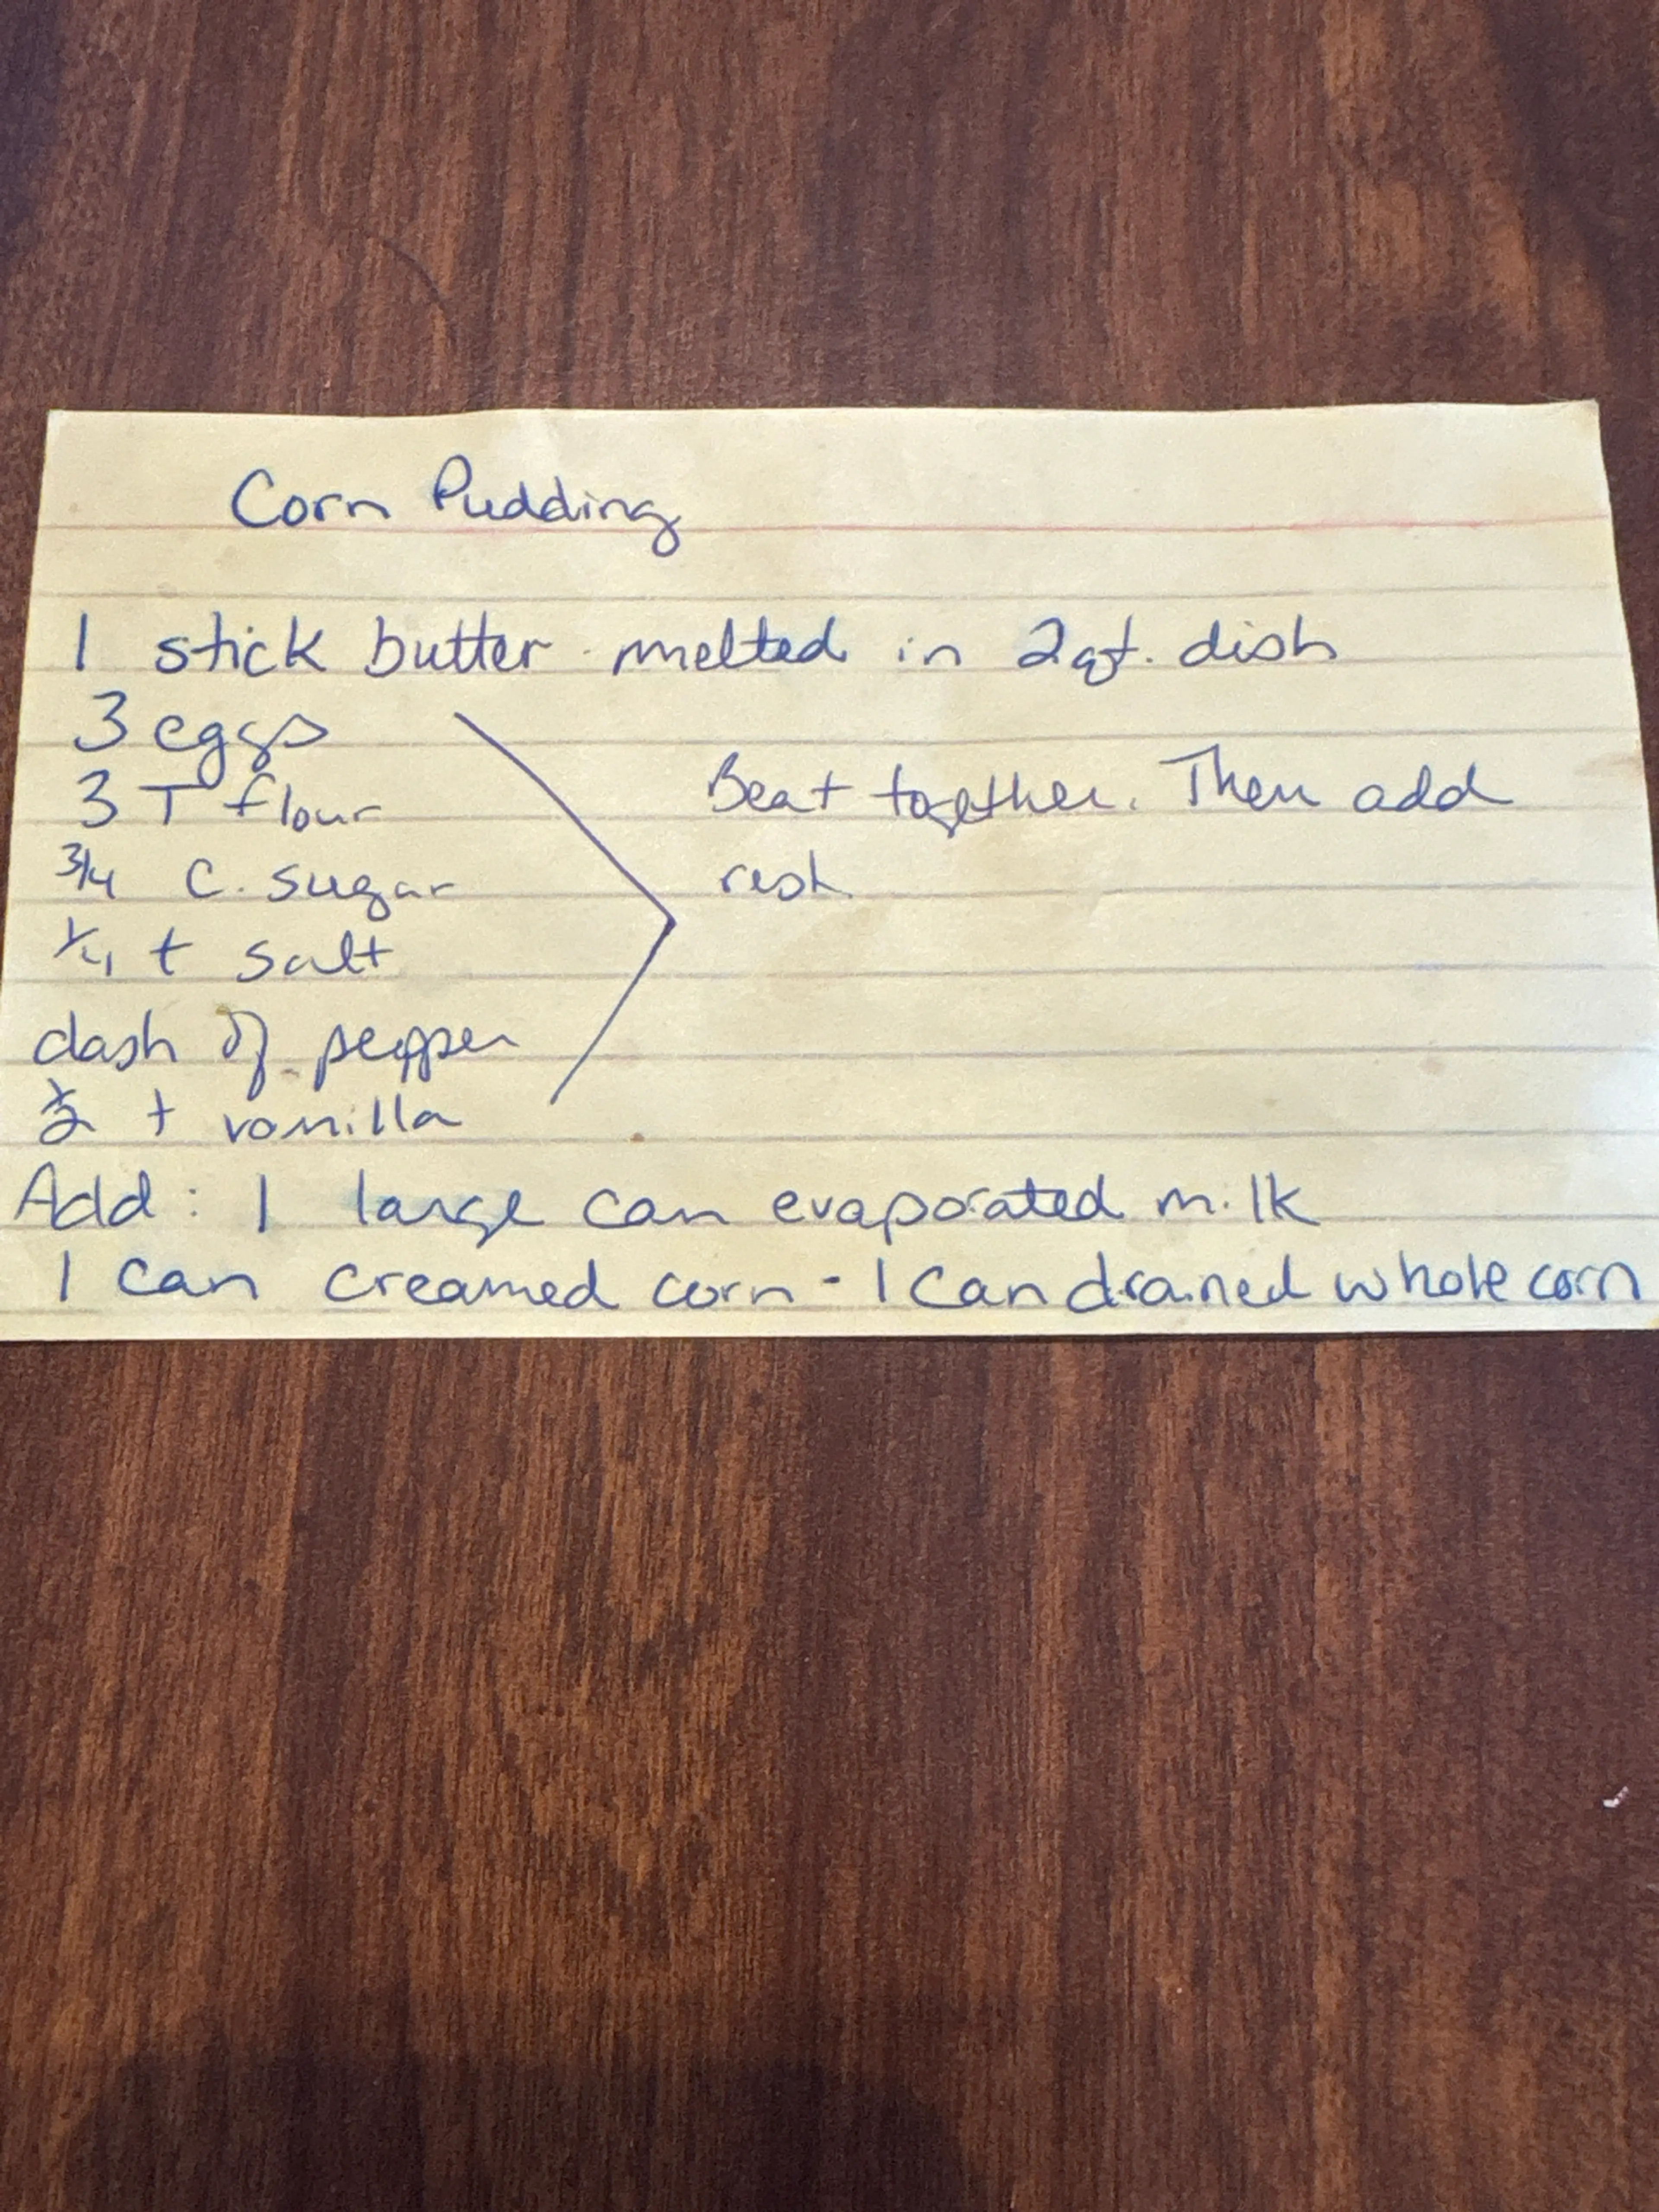 Corn Pudding
1 stick butter melted in 2qt. dish
3 eggs
3 T flour
Beat together. Then add
3/4 C. sugar
rest.
1/4 t salt
dash of pepper
1/2 t vanilla
Add: 1 large can evaporated milk
1 can creamed corn - 1 can drained whole corn